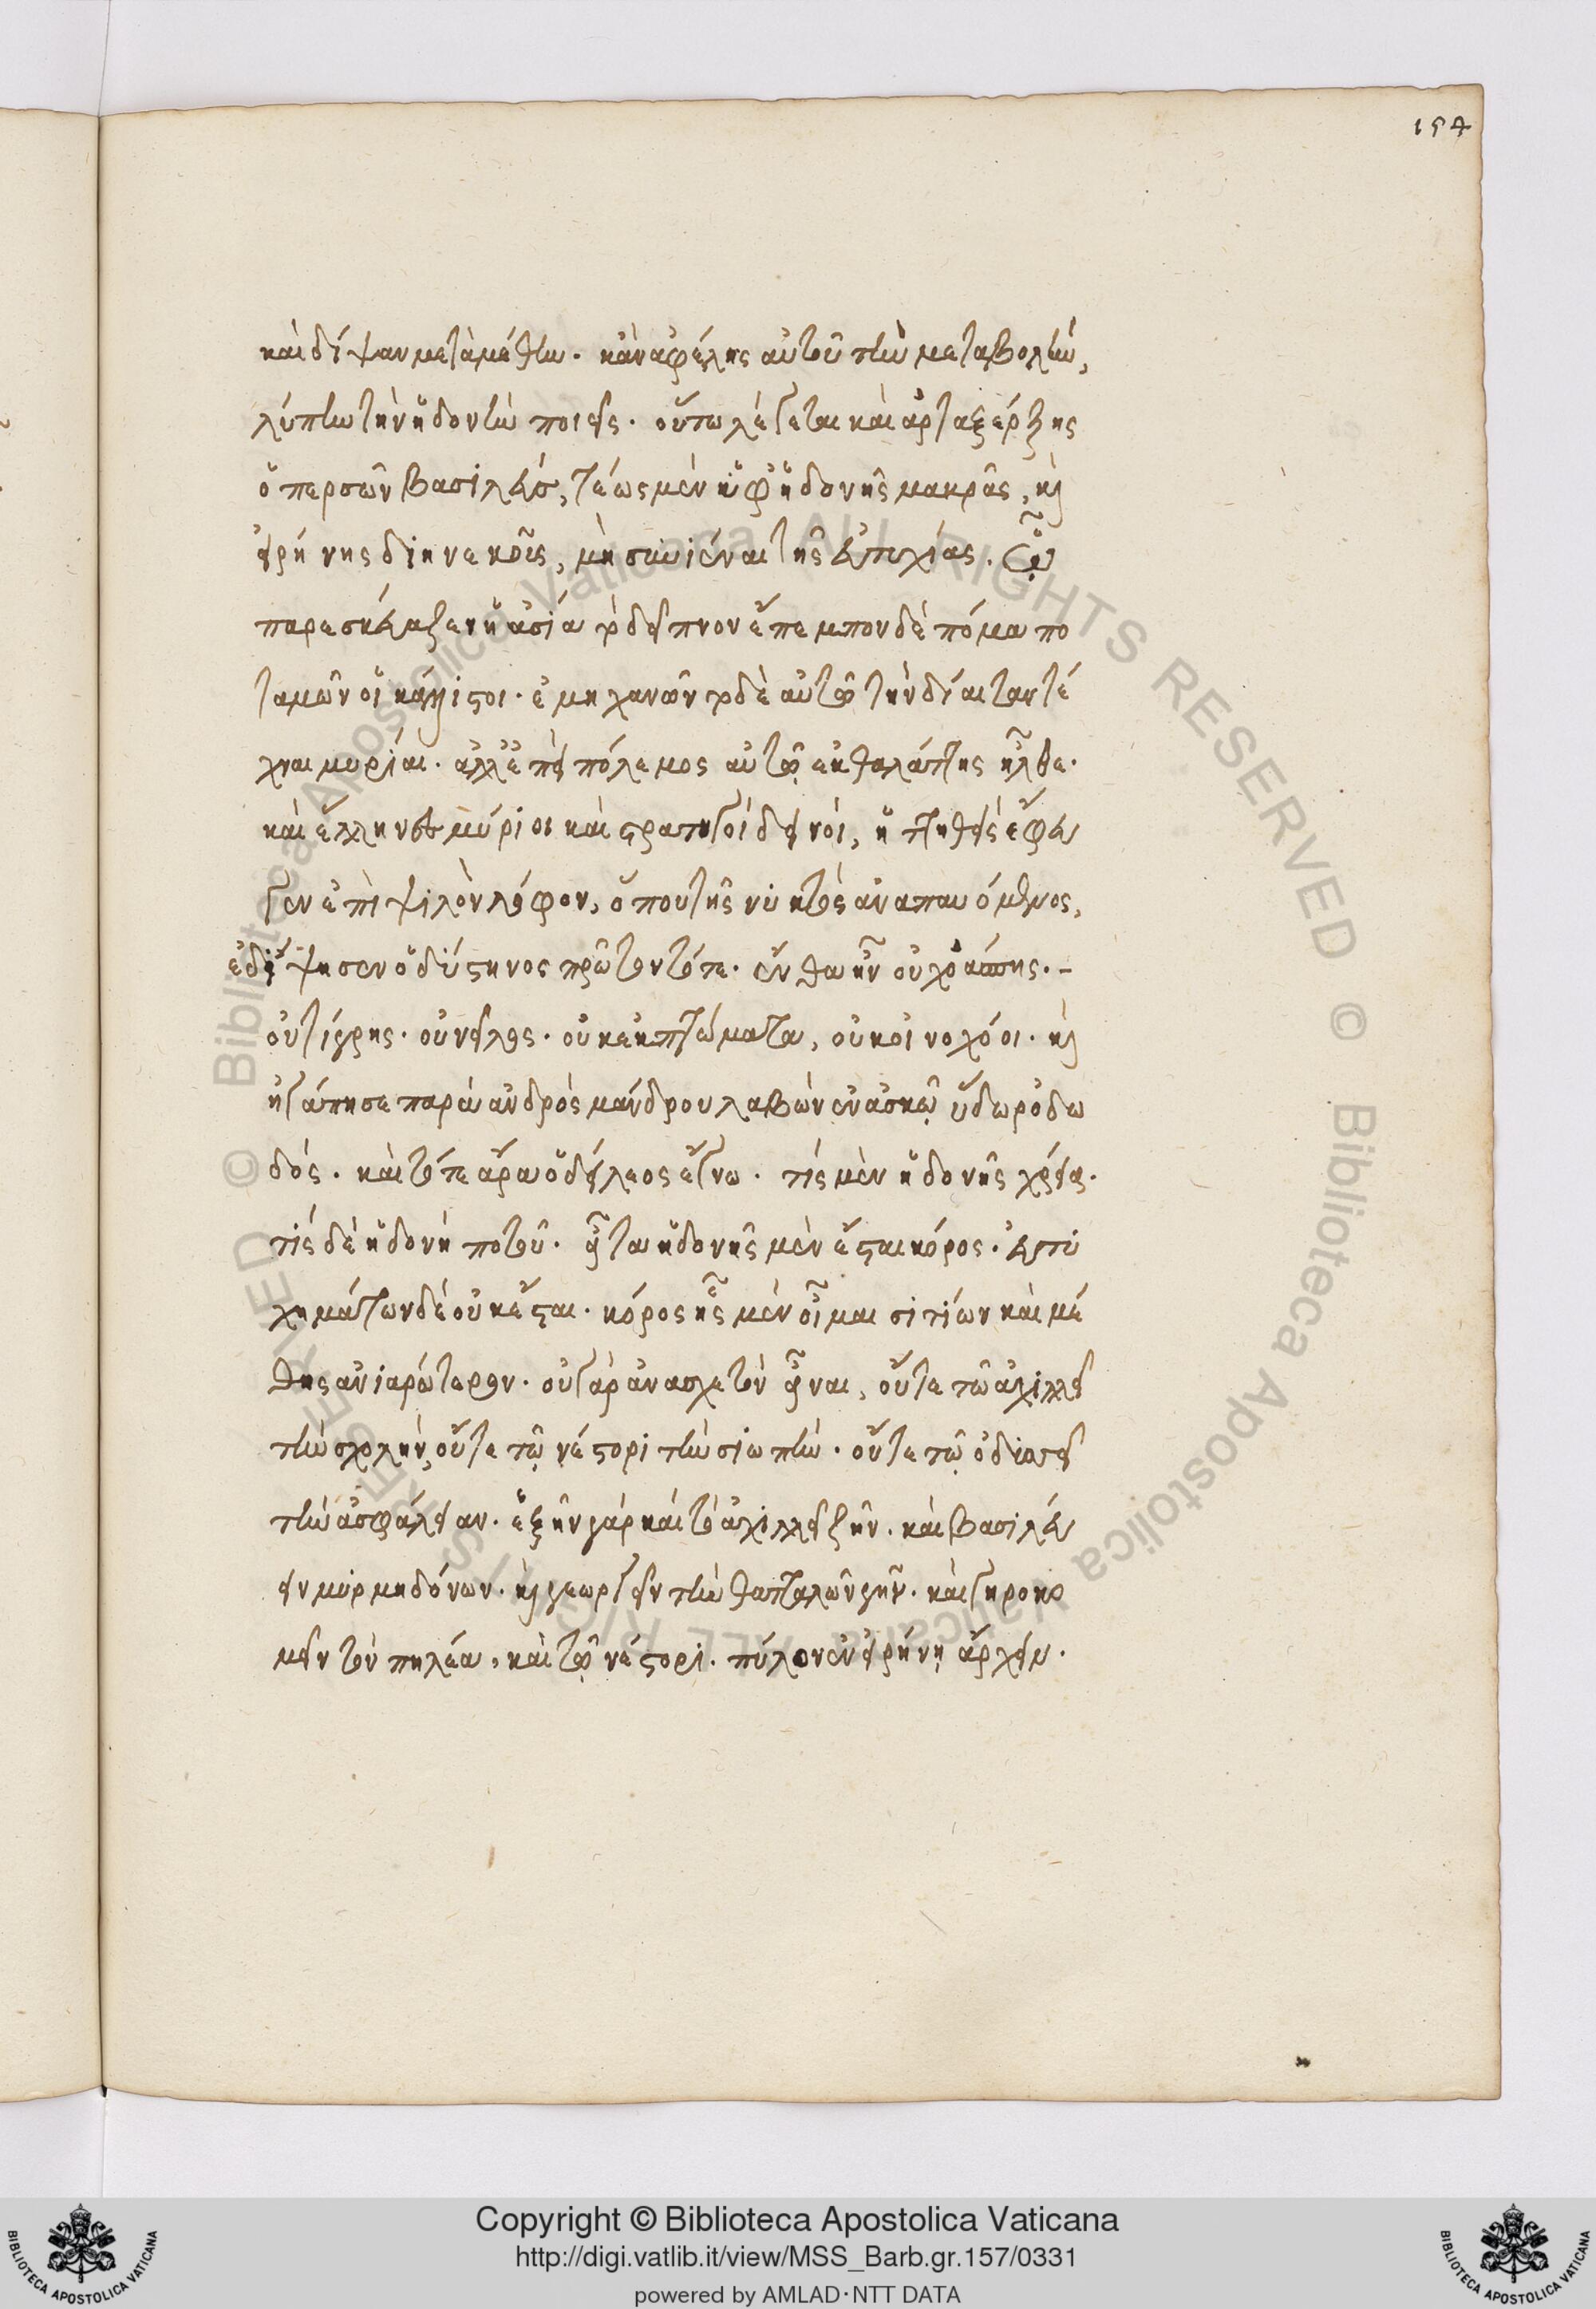 154
καὶ δίψαν μετὰ μέθην. κἂν ἀφέλῃς αὐτοῦ τὴν μεταβολὴν,
λύπην τὴν ἡδονὴν ποιεῖς. οὕτω λέγεται καὶ ἀρταξέρξης
ὁ περσῶν βασιλεύς, τέως μὲν ὑφ' ἡδονῆς μακρᾶς, καὶ
εἰρήνης διηνεκοῦς, μὴ συνιέναι τῆς εὐτυχίας. ᾧ
παρεσκεύαζεν ἡ ἀσία τὸ δεῖπνον ἔπεμπον δὲ πόμα πο
ταμῶν οἱ κάλλιστοι. ἐμηχανῶντο δὲ αὐτῷ τὴν δίαιταν τέ
χναι μυρίαι. ἀλλ' ἐπεὶ πόλεμος αὐτῷ ἐκ θαλάττης ἦλθε.
καὶ ἕλληνες μύριοι καὶ στρατηγοὶ δεινοὶ, ἡττηθεὶς ἔφευ
γεν ἐπὶ ψιλὸν λόφον, ὅπου τῆς νυκτὸς ἀναπαυόμενος,
ἐδίψησεν ὁ δύστηνος πρῶτον τότε. ἔνθα ἦν οὐ χοάσπης.
οὐ τίγρης. οὐ νεῖλος. οὐκ ἐκπώματα, οὐκ οἰνοχόοι. καὶ
ἠγάπησε παρὰ ἀνδρὸς μάνδρου λαβὼν ἐν ἀσκῷ ὕδωρ ὀδω
δός. καὶ τότε ἄρα ὁ δείλεος ἔγνω. τίς μὲν ἡδονῆς χρεία.
τίς δὲ ἡδονὴ ποτοῦ. εἶτα ἡδονῆς μὲν ἔσται κόρος. εὐτυ
χημάτων δὲ οὐκ ἔσται. κόρος ἧς μὲν οἶμαι σιτίων καὶ μέ
θης ἀνιαρώτερον. οὐ γὰρ ἀνασχετὸν εἶναι, οὔτε τῶ ἀχιλλεῖ
τὴν σχολὴν, οὔτε τῷ νέστορι τὴν σιωπὴν. οὔτε τῷ ὀδυσσεῖ
τὴν ἀσφάλειαν. ἐξῆν γὰρ καὶ τῶ ἀχιλλεῖ ζῆν. καὶ βασιλεύ
ειν μυρμηδόνων. καὶ γεωργεῖν τὴν θατταλῶν γῆν. καὶ γηροκο
μεῖν τὸν πηλέα, καὶ τῷ νέστορι. πύλον ἐν εἰρήνῃ ἄρχειν.
Copyright © Biblioteca Apostolica Vaticana
http://digi.vatlib.it/view/MSS_Barb.gr.157/0331
powered by AMLAD·NTT DATA
BIBLIOTECA APOSTOLICA VATICANA
BIBLIOTECA APOSTOLICA VATICANA
© Biblioteca Apostolica Vaticana ALL RIGHTS RESERVED
© Biblioteca Apostolica Vaticana ALL RIGHTS RESERVED